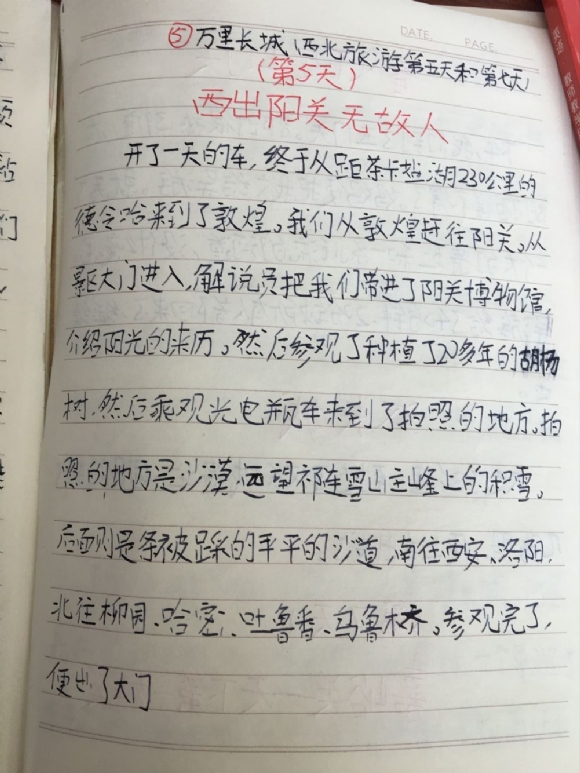 DATE PAGE
⑤万里长城,西北旅游第五天和第七天
(第5天)
西出阳关无故人
开了一天的车,终于从距茶卡盐湖230公里的
德令哈来到了敦煌。我们从敦煌赶往阳关。从
景区大门进入,解说员把我们带进了阳关博物馆,
介绍阳光的来历。然后参观了种植了20多年的胡杨
树.然后乘观光电瓶车来到了拍照的地方.拍
照的地方是沙漠.远望祁连雪山主峰上的积雪。
后面则是条被踩的平平的沙道,南往西安、洛阳.
北往柳园、哈密、吐鲁番、乌鲁木齐。参观完了,
便出了大门